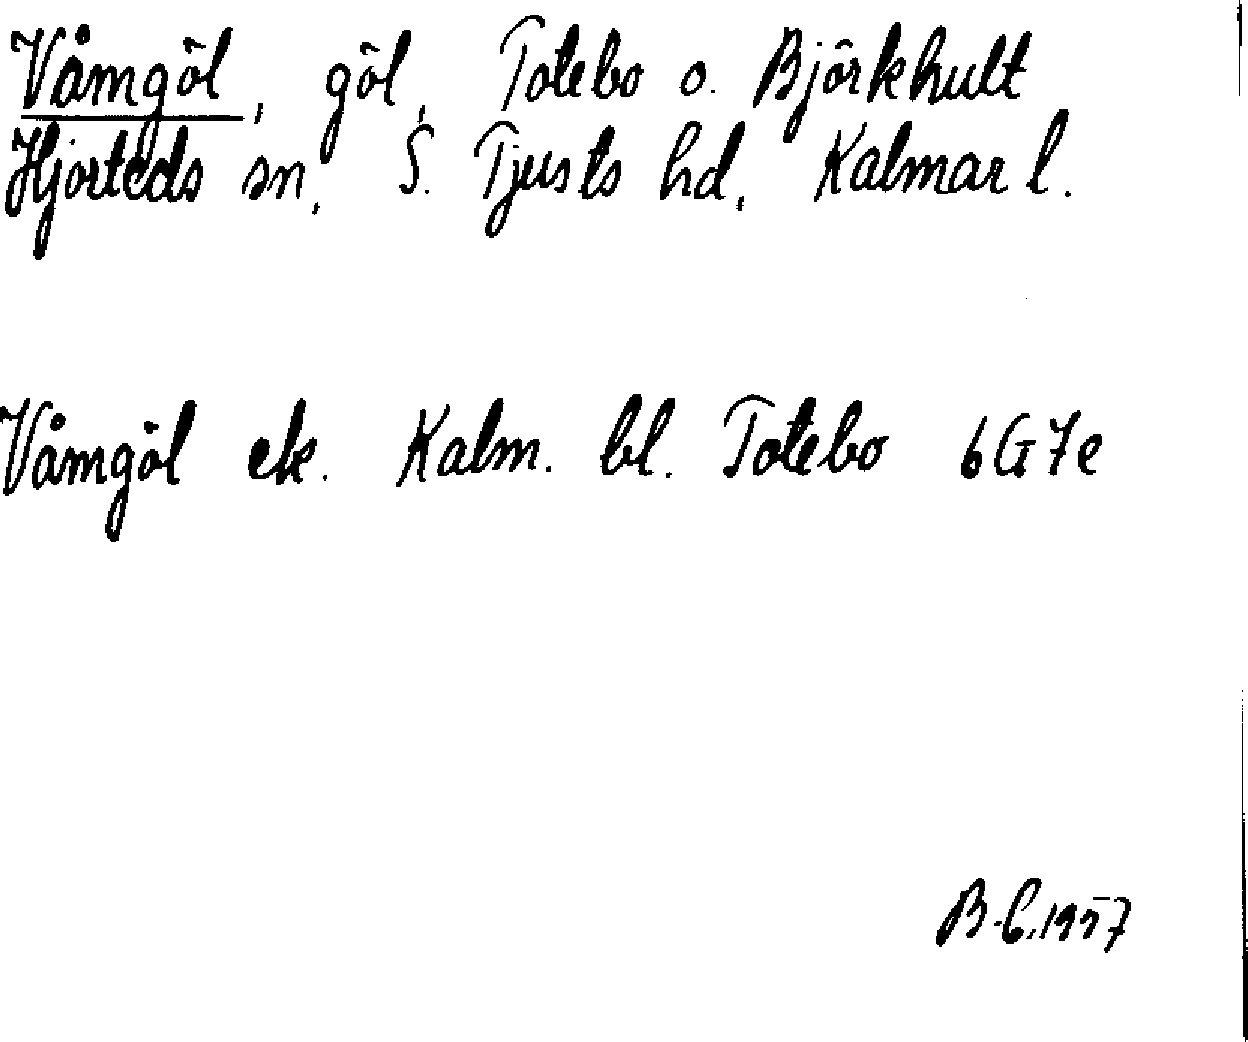 Våmgöl, göl, Totebo o. Björkhult
Hjorteds sn, S. Tjusts hd, Kalmar l.
Våmgöl ek. Kalm. bl. Totebo 6G7e
1957